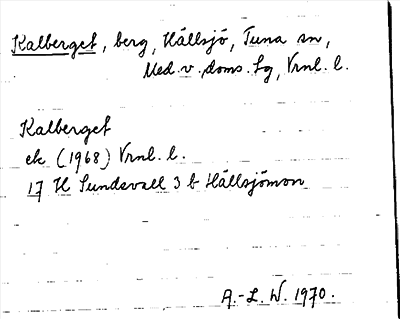 Kalberget, berg, Hällsjö, Tuna sn,
Med. v. doms. tg, Vrnl. l.
Kalberget
ek (1968) Vrnl. l.
17 H Sundsvall 3 b Hällsjömon
A.-L. W. 1970.